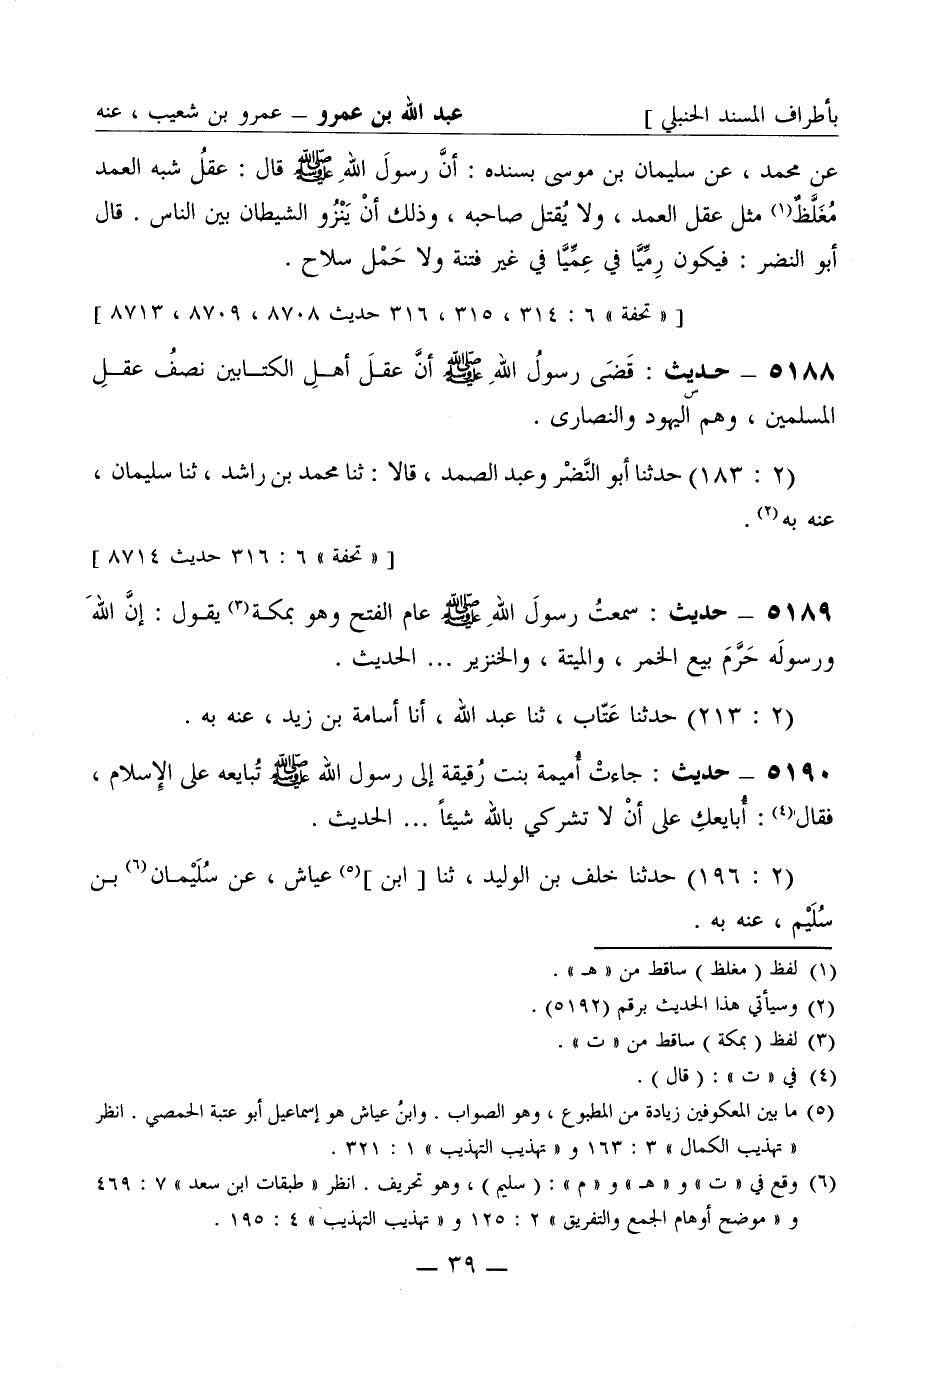 بأطراف المسند الحنبلي ] عبد الله بن عمرو – عمرو بن شعيب ، عنه
عن محمد ، عن سليمان بن موسى بسنده : أنَّ رسولَ اللهِ ﷺ قال : عقلُ شبه العمد
مُغَلَّظٌ(١) مثل عقل العمد ، ولا يُقتل صاحبه ، وذلك أنْ يَنْزُو الشيطان بين الناس . قال
أبو النضر : فيكون رِمِّيًّا في عِمِّيًّا في غير فتنة ولا حَمْل سلاح .
[ « تحفة » ٦ : ٣١٤ ، ٣١٥ ، ٣١٦ حديث ٨٧٠٨ ، ٨٧٠٩ ، ٨٧١٣ ]
٥١٨٨ – حديث : قَضَى رسولُ اللهِ ﷺ أنَّ عقلَ أهلِ الكتابين نصفُ عقلِ
المسلمين ، وهم اليهود والنصارى .
(٢ : ١٨٣) حدثنا أبو النَّضْر وعبد الصمد ، قالا : ثنا محمد بن راشد ، ثنا سليمان ،
عنه به(٢) .
[ « تحفة » ٦ : ٣١٦ حديث ٨٧١٤ ]
٥١٨٩ – حديث : سمعتُ رسولَ اللهِ ﷺ عام الفتح وهو بمكة(٣) يقول : إنَّ اللهَ
ورسولَه حَرَّمَ بيع الخمر ، والميتة ، والخنزير ... الحديث .
(٢ : ٢١٣) حدثنا عَتّاب ، ثنا عبد الله ، أنا أسامة بن زيد ، عنه به .
٥١٩٠ – حديث : جاءتْ أُميمة بنت رُقيقة إلى رسول الله ﷺ تُبايعه على الإسلام ،
فقال(٤) : أُبايعكِ على أنْ لا تشركي بالله شيئاً ... الحديث .
(٢ : ١٩٦) حدثنا خلف بن الوليد ، ثنا [ ابن ](٥) عياش ، عن سُلَيْمان(٦) بن
سُلَيْم ، عنه به .
(١) لفظ ( مغلظ ) ساقط من « هـ » .
(٢) وسيأتي هذا الحديث برقم (٥١٩٢) .
(٣) لفظ ( بمكة ) ساقط من « ت » .
(٤) في « ت » : ( قال ) .
(٥) ما بين المعكوفين زيادة من المطبوع ، وهو الصواب . وابنُ عياش هو إسماعيل أبو عتبة الحمصي . انظر
« تهذيب الكمال » ٣ : ١٦٣ و « تهذيب التهذيب » ١ : ٣٢١ .
(٦) وقع في « ت » و « هـ » و « م » : ( سليم ) ، وهو تحريف . انظر « طبقات ابن سعد » ٧ : ٤٦٩
و « موضح أوهام الجمع والتفريق » ٢ : ١٢٥ و « تهذيب التهذيب » ٤ : ١٩٥ .
– ٣٩ –